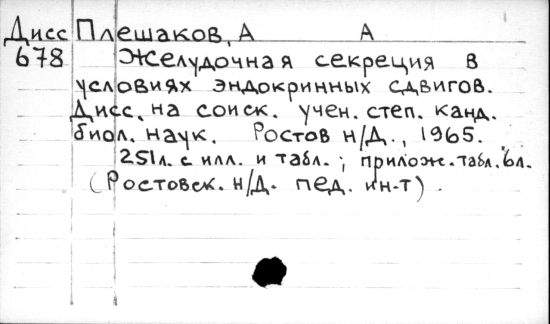 Дисс Плешаков, А А
678 Желудочная секреция в
условиях эндокринных сдвигов.
Дисс. на соиск. учен. степ. канд.
биол. наук. Ростов н/Д., 1965.
251л. с илл. и табл. ; прилож. табл. 6л.
(Ростовск. н/Д. пед. ин-т).